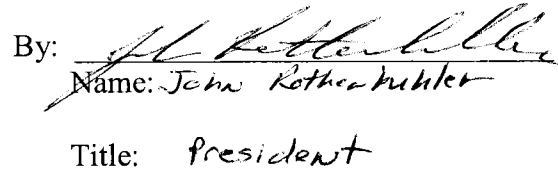 By:
Name: John Rothenbuhler
Title: President